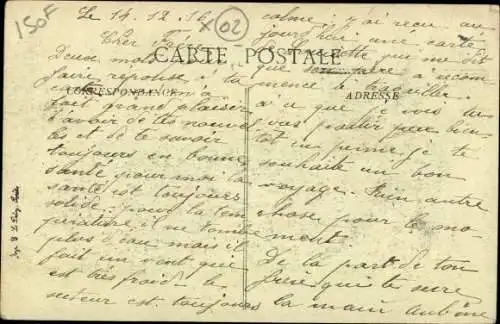 150F
X 02
Le 14.12.16
Cher
CARTE POSTALE
CORRESPONDANCE
ADRESSE
Deux mots
faire réponse à ta
fait grand plaisir
d'avoir de tes nouvel
les et de te savoir
toujours en bonne
santé pour moi la
santé est toujours
solide. pour la tem
pérature il ne tombe
plus d'eau mais il
fait un vent que
est très froid. le
secteur est toujours
calme. j'ai reçu au
jourd'hui une carte
que me dit
que son père a récom
mencé le travailler
à ce que je vois tu
vas partir peux bien
tôt en perme. je te
souhaite un bon
voyage. Rien autre
chose pour le mo
ment
De la part de ton
frère qui te serre
la main